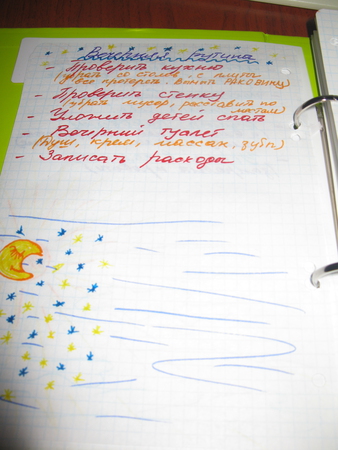 Вечерняя рутина
- Проверить кухню
(убрать со столов, с плиты
все протереть. Вымыть РАКОВИНУ)
- Проверить стенку
(убрать мусор, расставить по
местам)
- Уложить детей спать
- Вечерний туалет
(Душ, крем, массаж, зубы)
- Записать расходы